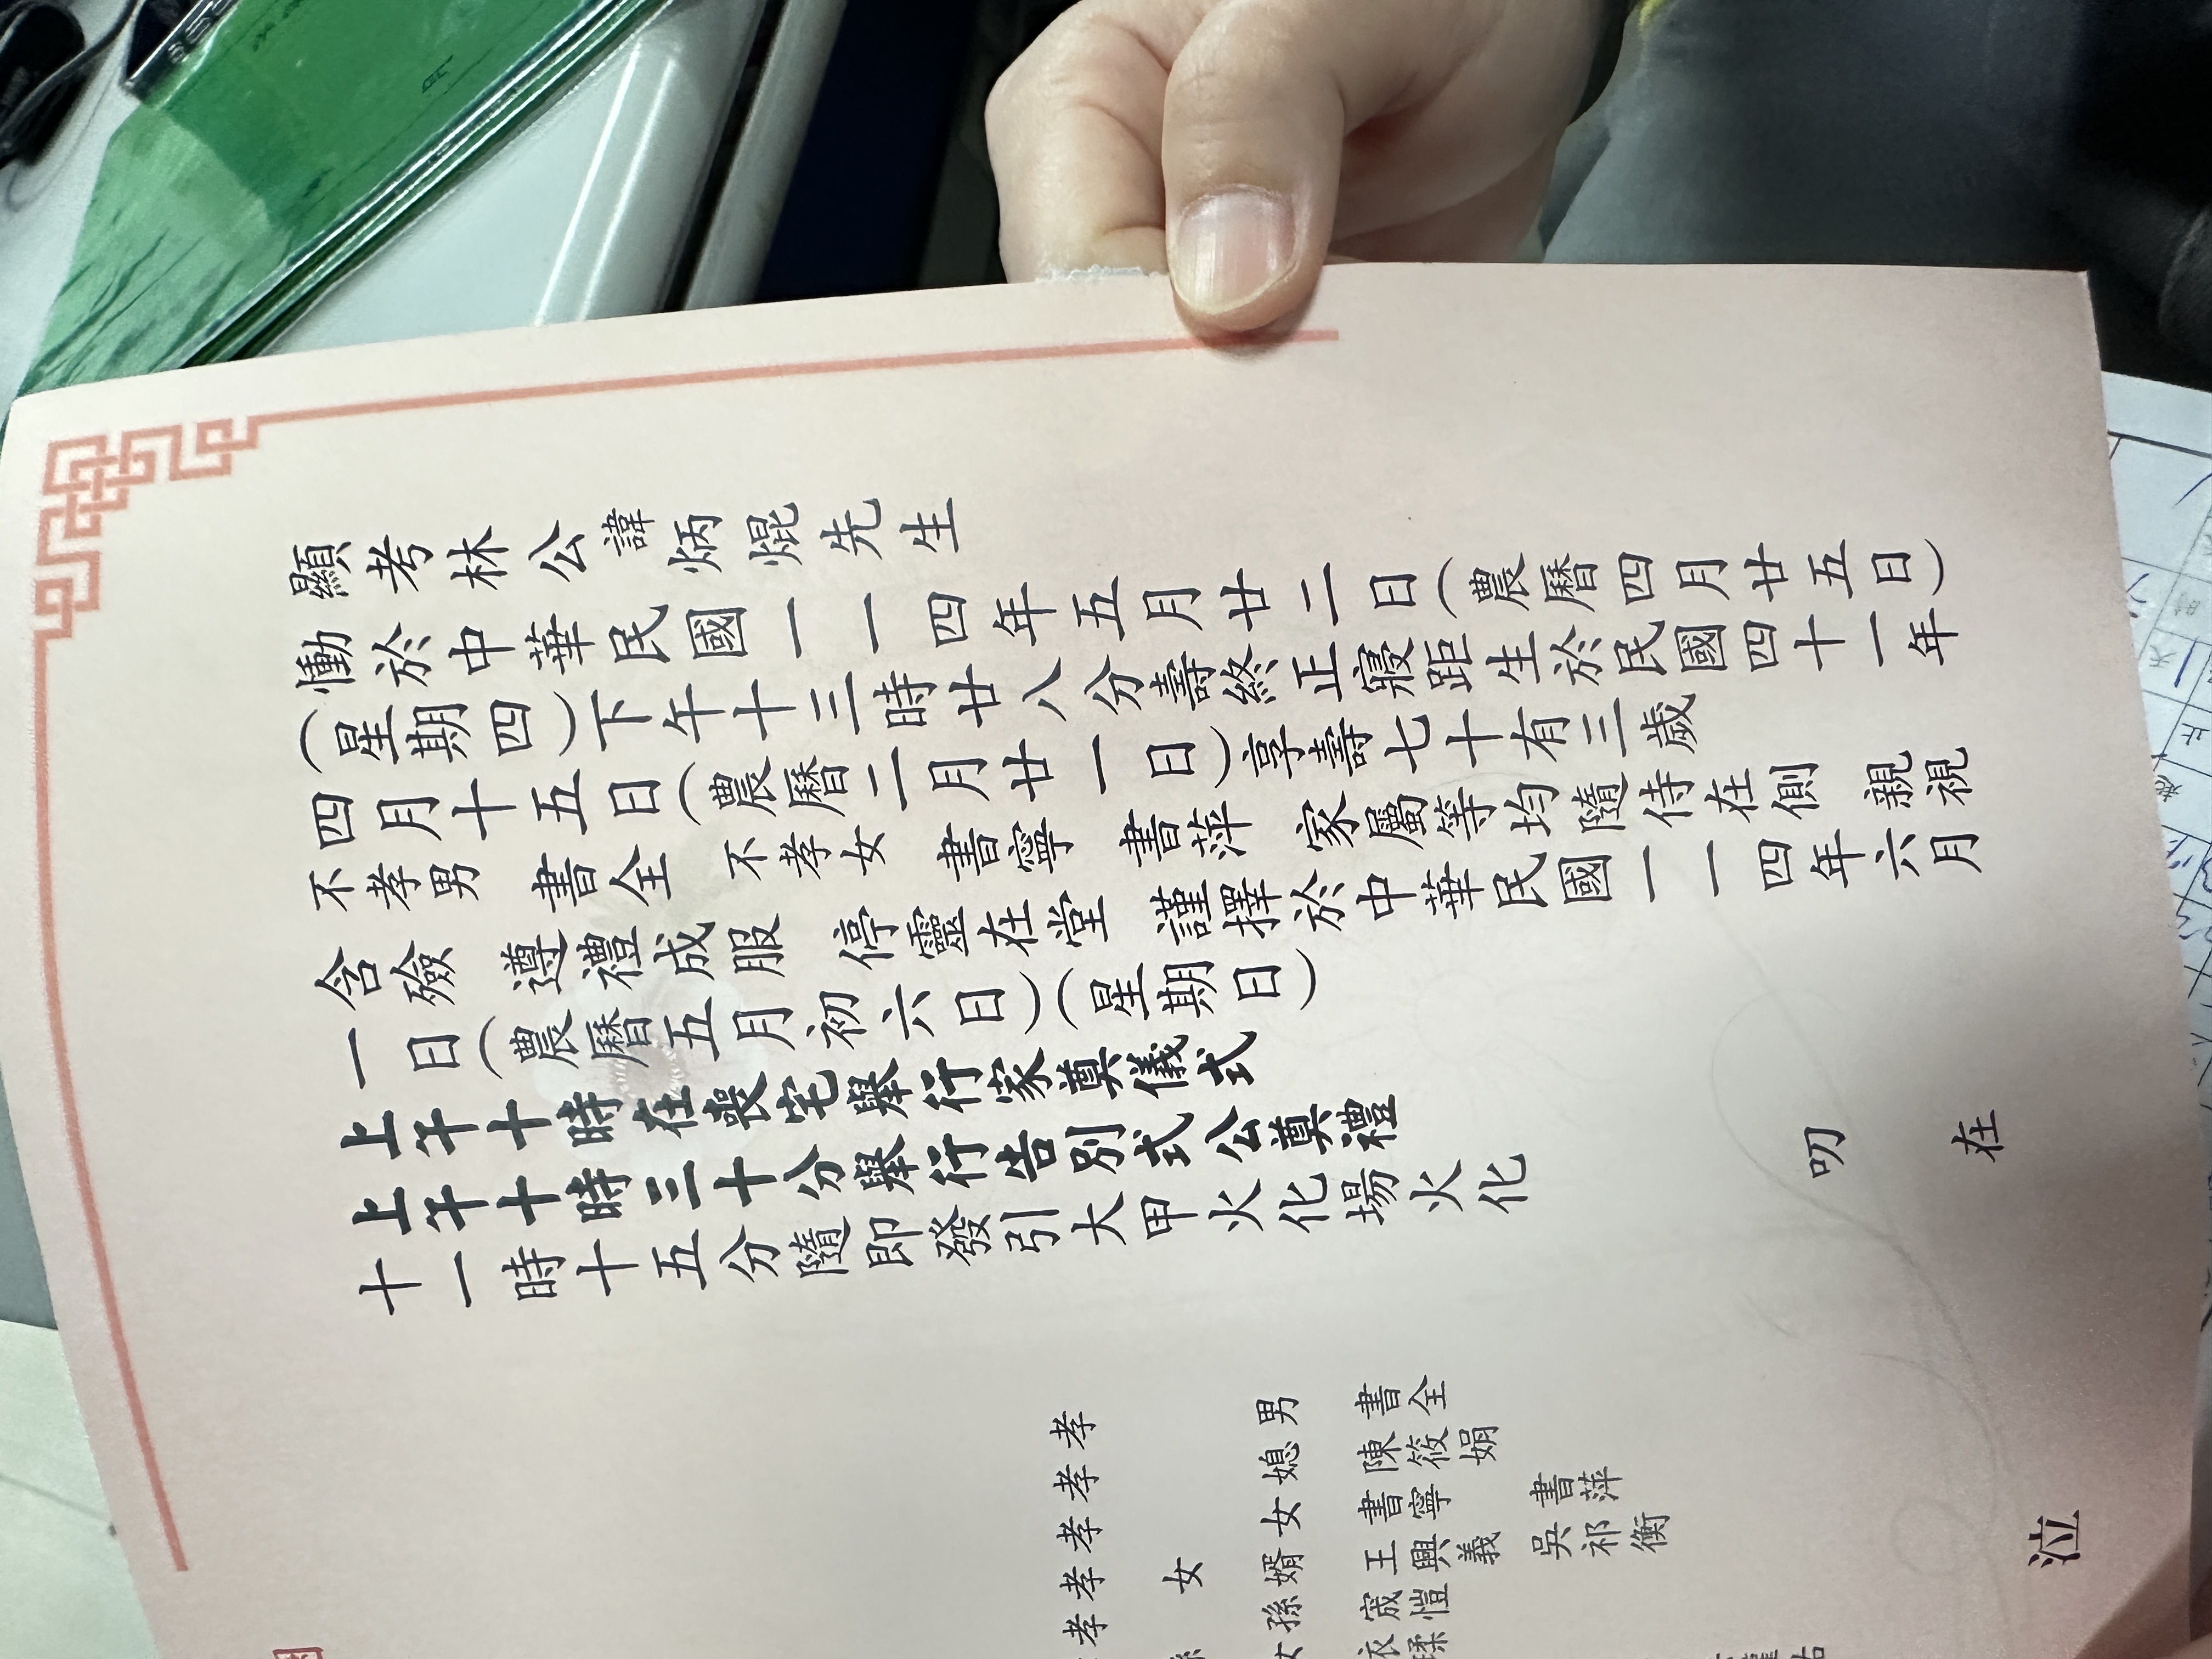 顯考林公諱炳焜先生
慟於中華民國一一四年五月廿二日(農曆四月廿五日)
(星期四)下午十三時廿八分壽終正寢距生於民國四十一年
四月十五日(農曆二月廿一日)享壽七十有三歲
不孝男 書全 不孝女 書寧 書萍 家屬等均隨侍在側 親視
含殮 遵禮成服 停靈在堂 謹擇於中華民國一一四年六月
一日(農曆五月初六日)(星期日)
上午十時在喪宅舉行家奠儀式
上午十時三十分舉行告別式公奠禮
十一時十五分隨即發引大甲火化場火化
叨
在
孝男 書全
孝媳 陳筱娟
孝女 書寧 書萍
孝女婿 王興義 吳祁衡
孝孫 宬愷
孝孫女 衣瑈
泣